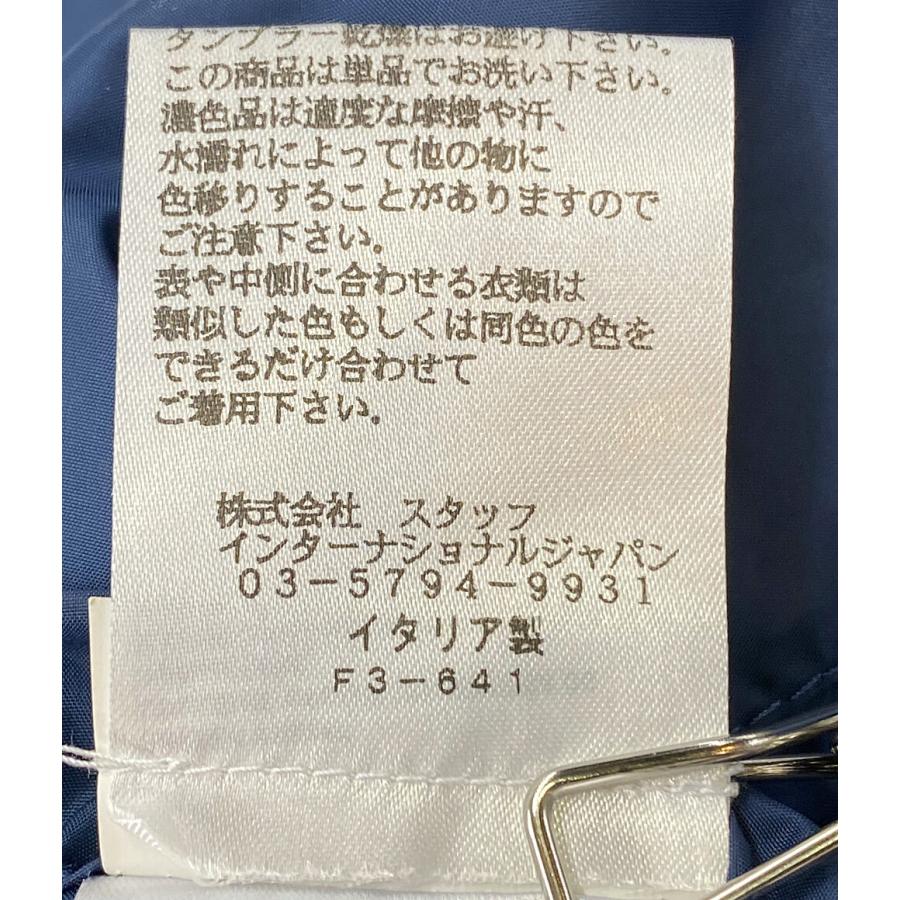 タンブラー乾燥はお避け下さい。
この商品は単品でお洗い下さい。
濃色品は適度な摩擦や汗、
水濡れによって他の物に
色移りすることがありますので
ご注意下さい。
表や中側に合わせる衣類は
類似した色もしくは同色の色を
できるだけ合わせて
ご着用下さい。
株式会社 スタッフ
インターナショナルジャパン
03-5794-9931
イタリア製
F3-641